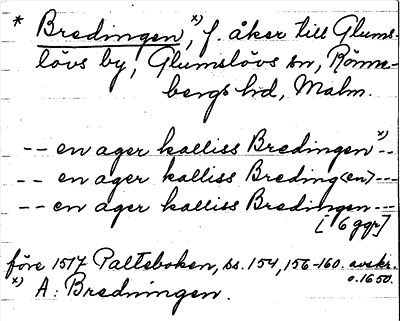 * Bredingen, x) f. åker till Glums-
lövs by, Glumslövs sn, Rönne-
bergs hd, Malm.
-- en ager kalliss Bredingen x) --
-- en ager kalliss Breding(en) ---
-- en ager kalliss Bredingen ---
[6 ggr]
före 1517 Palteboken, ss. 154, 156-160. avskr.
o. 1650.
x) A: Bredningen.